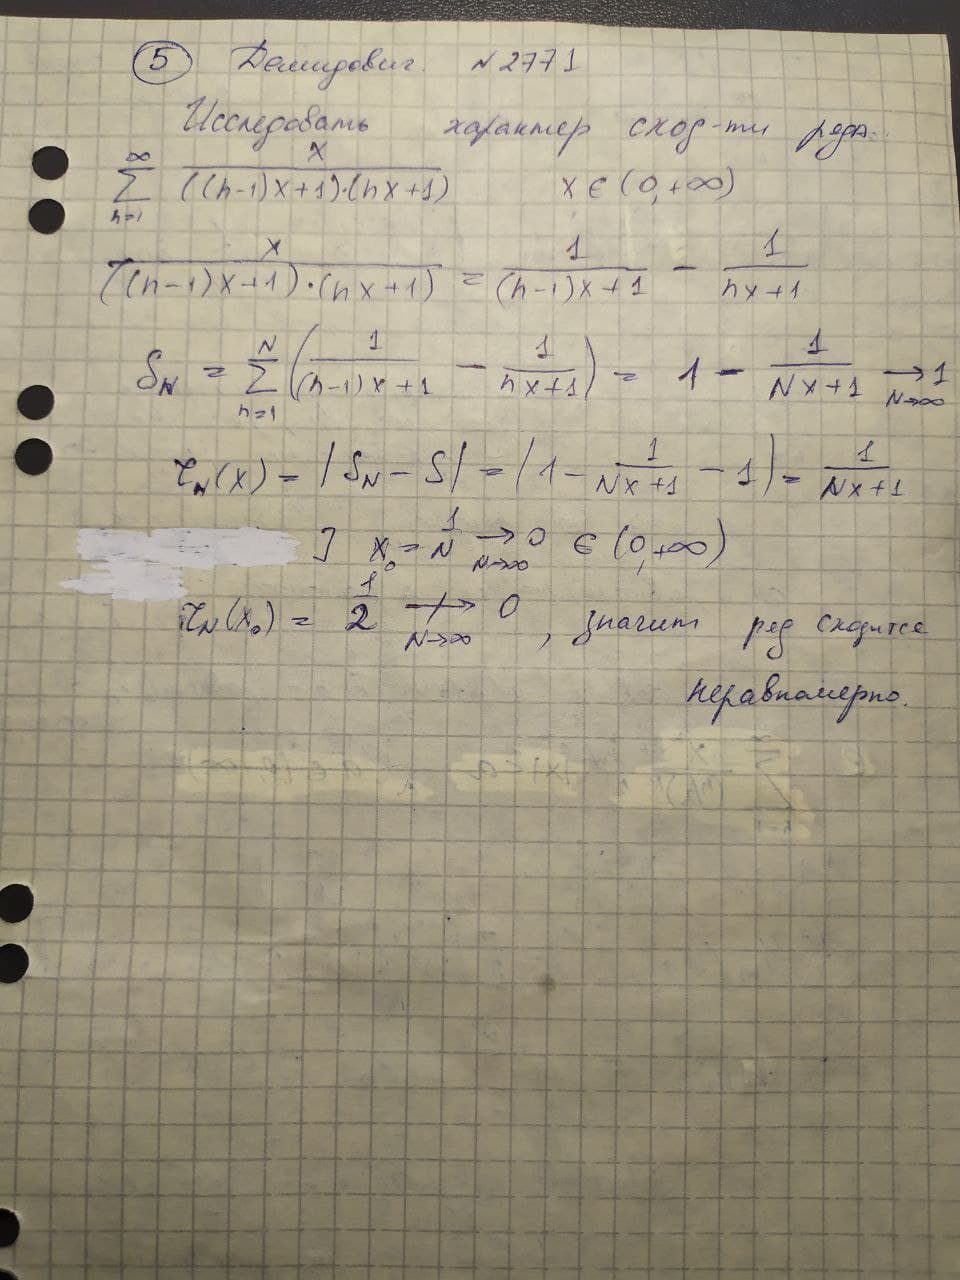 5 Демидович. №2771
Исследовать характер сход-ти ряда.
∞ ∑ n=1 x / (((n-1)x+1)·(nx+1)) x ∈ (0,+∞)
x / (((n-1)x+1)·(nx+1)) = 1 / ((n-1)x+1) - 1 / (nx+1)
S_N = N ∑ n=1 (1 / ((n-1)x+1) - 1 / (nx+1)) = 1 - 1 / (Nx+1) → N→∞ 1
τ_N(x) = |S_N - S| = |1 - 1 / (Nx+1) - 1| = 1 / (Nx+1)
] x₀ = 1 / N → N→∞ 0 ∈ (0,+∞)
τ_N(x₀) = 1 / 2 ↛ N→∞ 0, значит ряд сходится
неравномерно.